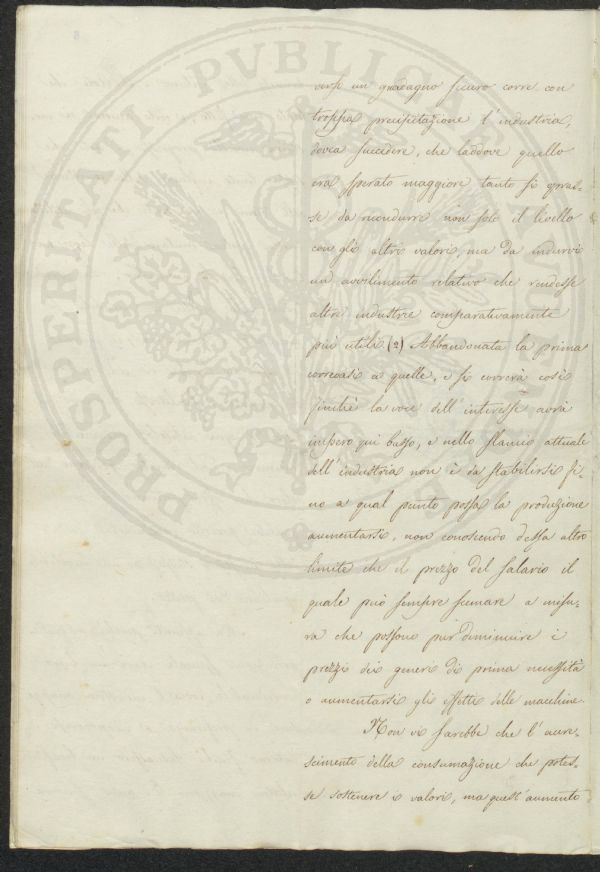 PROSPERITATI PVBLICAE
verso un guadagno sicuro corre con
troppa precipitazione l'industria,
dovea succedere, che laddove quello
era sperato maggiore tanto si
se da ricondurre non solo il livello
con gli altri valori, ma da indurvi
un avvilimento relativo che rendesse
altre industrie comparativamente
più utili. (2) Abbandonata la prima
correasi a quelle, e si correrà così
finchè la voce dell'interesse avrà
impero qui basso, e nello slancio attuale
dell'industria non è da stabilirsi fi-
no a qual punto possa la produzione
aumentarsi, non conoscendo dessa altro
limite che il prezzo del salario il
quale può sempre scemare a misu-
ra che possono pur diminuire i
prezzi dei generi di prima necessità
o aumentarsi gli effetti delle macchine.
Non vi sarebbe che l'accre-
scimento della consumazione che potes-
se sostenere i valori, ma quest'aumento